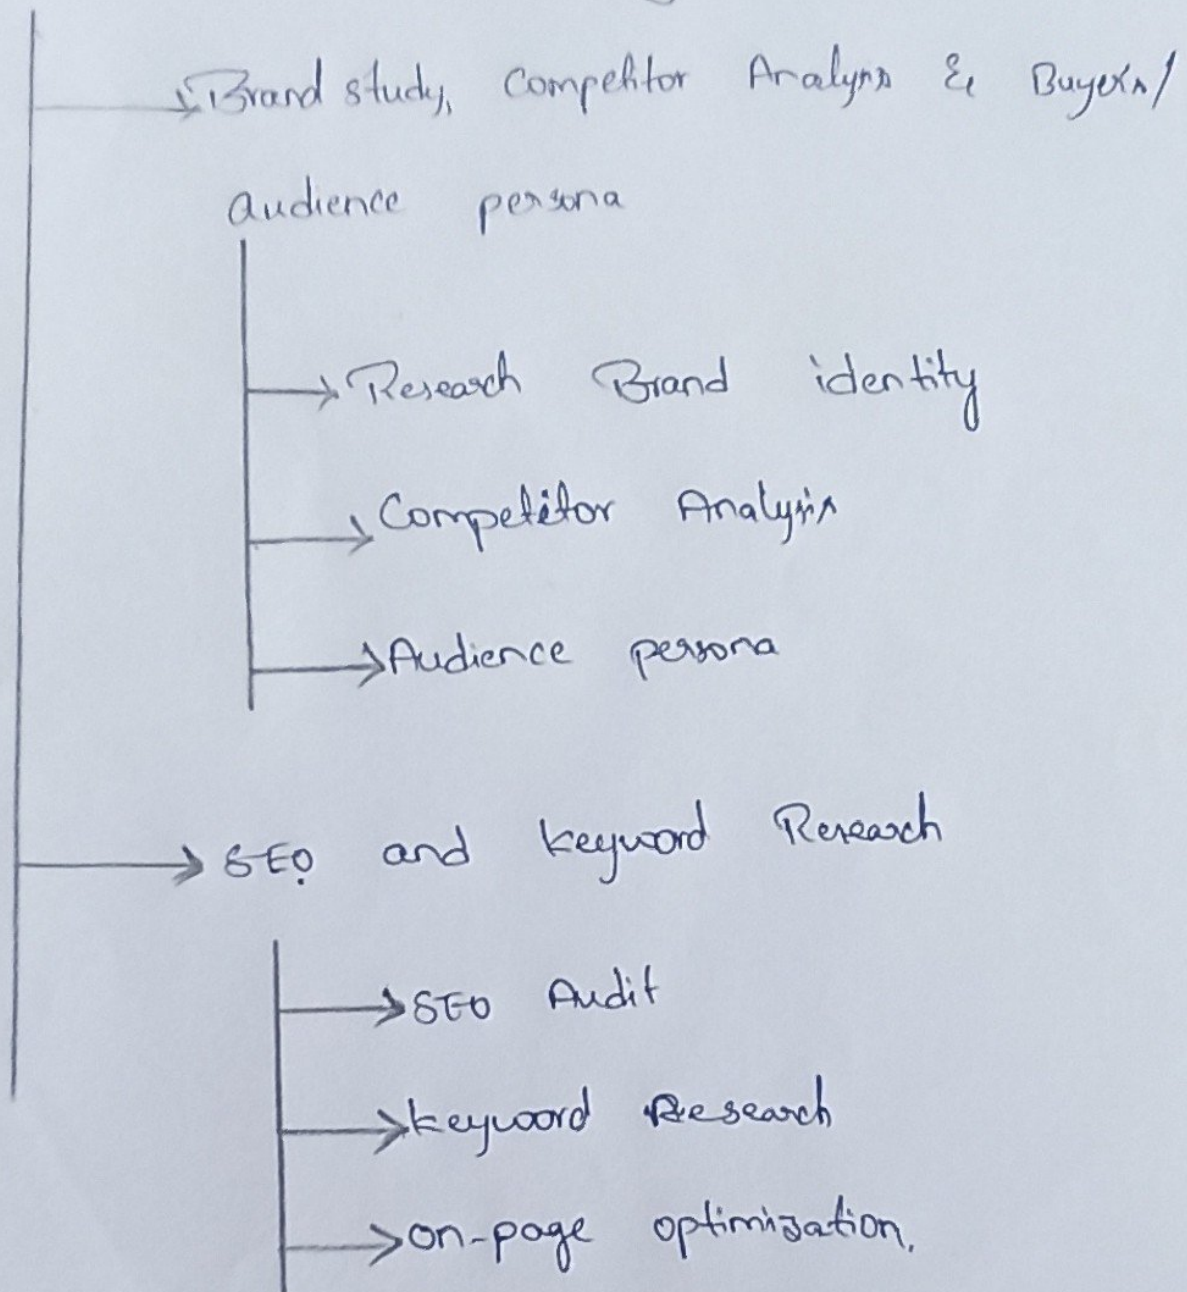 Brand study, Competitor Analysis & Buyer's/
audience persona
Research Brand identity
Competitor Analysis
Audience persona
SEO and keyword Research
SEO Audit
keyword Research
on-page optimization.